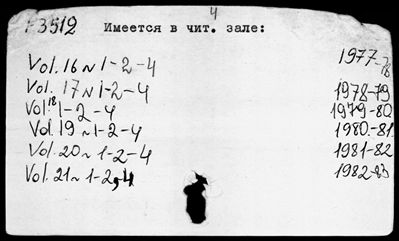 4
P3512 Имеется в чит. зале:
Vol. 16 N 1-2-4 1977-78
Vol. 17 N 1-2-4 1978-79
Vol 18 1-2-4 1979-80
Vol. 19 N 1-2-4 1980-81
Vol. 20 N 1-2-4 1981-82
Vol. 21 N 1-2,4 1982-83